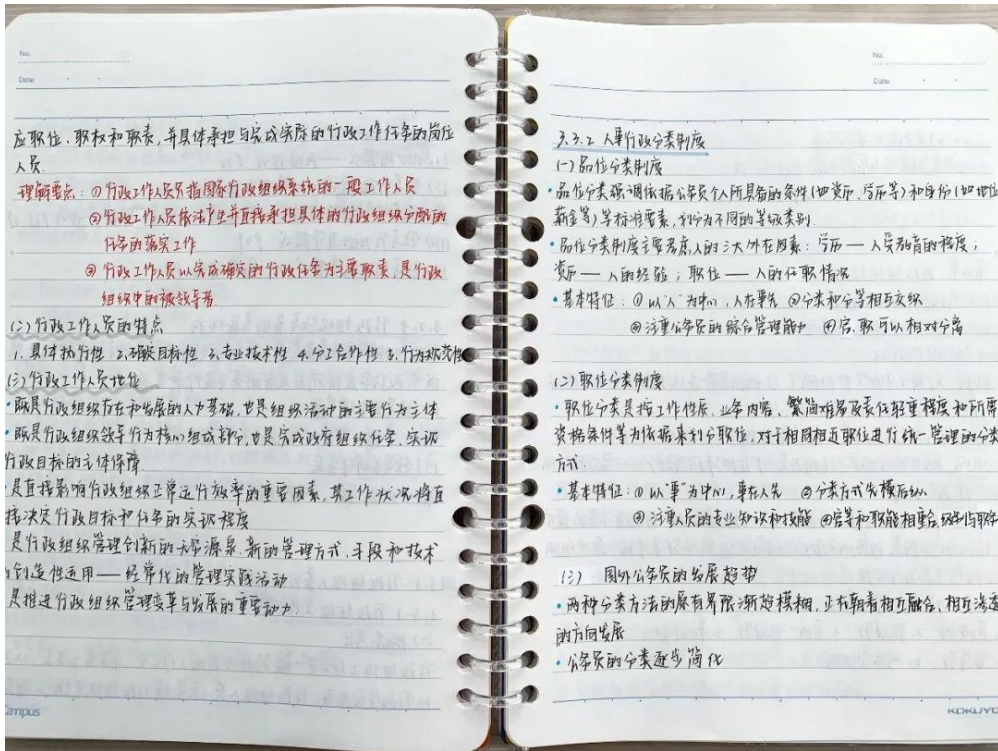 No.
Date
应职位、职权和职责,并具体承担与完成实际的行政工作任务的岗位
人员.
理解要点:①行政工作人员指国家行政组织系统的一般工作人员
②行政工作人员依法产生并直接承担具体的行政组织分配的
任务的落实工作
③行政工作人员以完成确定的行政任务为主要职责,是行政
组织中的被领导者
(二)行政工作人员的特点
1、具体执行性 2、确定目标性 3、专业技术性 4、分工合作性 5、行为规范性
(三)行政工作人员地位
·既是行政组织存在和发展的人力基础,也是组织活动的主要行为主体
·既是行政组织领导行为核心组成部分,也是完成政府组织任务、实现
行政目标的主体保障.
·是直接影响行政组织正常运行效率的重要因素,其工作状况将直
接决定行政目标和任务的实现程度
是行政组织管理创新的大学源泉,新的管理方式、手段和技术
创造性运用——经常化的管理实践活动
是推进行政组织管理变革与发展的重要动力.
Campus
No.
Date
3.3.2 人事行政分类制度
(一)品位分类制度
·品位分类强调依据公务员个人所具备的条件(如资历、学历等)和身份(如地位
薪金等)等标准要素,划分为不同的等级类别.
·品位分类制度主要考虑人的三大外在因素:学历——人受教育的程度;
资历——人的经验;职位——人的任职情况
·基本特征:①以"人"为中心,人在事先 ②分类和分等相互交织
③注重公务员的综合管理能力 ④官、职可以相对分离
(二)职位分类制度
·职位分类是按工作性质、业务内容、繁简难易及责任轻重程度和所需
资格条件等为依据来划分职位,对于相同相近职位进行统一管理的分类
方式.
·基本特征:①以"事"为中心,事在人先 ②分类方式先横后纵
③注重人员的专业知识和技能 ④官等和职能相重合,级别与职
(三) 国外公务员的发展趋势
·两种分类方法的原有界限渐趋模糊,正有朝着相互融合、相互渗透
的方向发展
·公务员的分类逐步简化
KOKUYO